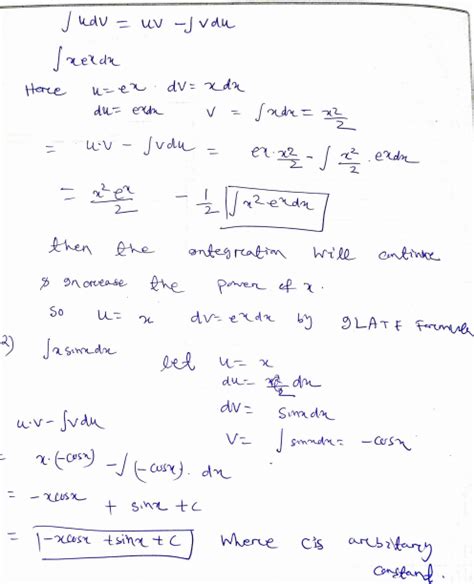 ∫udv = uv - ∫vdu
∫xexdx
Here u = ex . dv = xdx
du = exdx v = ∫xdx = x²/2
= u.v - ∫vdu = ex.x²/2 - ∫x²/2 . exdx
= x²ex/2 - 1/2 ∫x²exdx
then the integration will continue
& increase the power of x.
So u = x dv = exdx by ILATE Formula
2) ∫xsinxdx let u = x
du = dx
dv = sinxdx
v = ∫sinxdx = -cosx
u.v - ∫vdu
= x.(-cosx) - ∫(-cosx). dx
= -xcosx + sinx + c
= -xcosx + sinx + c where c is arbitary
constant.